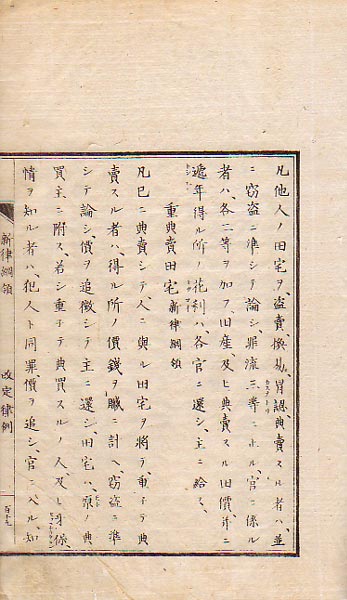 凡他人ノ田宅ヲ、盗賣、換易、冒認、典賣スル者ハ、並
ニ窃盗ニ準シテ論シ、罪流三等ニ止ル、官ニ係ル
者ハ、各二等ヲ加フ、旧産、及ヒ典賣スル旧價、并ニ
遞年得ル所ノ花利ハ、各官ニ還シ、主ニ給ス、
重典賣田宅 新律綱領
凡已ニ典賣シテ、人ニ與ル田宅ヲ将テ、重子テ典
賣スル者ハ、得ル所ノ價錢ヲ贓ニ計ヘ、窃盗ニ準
シテ論シ、價ヲ追徴シテ主ニ還シ、田宅ハ、原ノ典
買主ニ附ス、若シ重子テ典買スルノ人、及ヒ牙保、
情ヲ知ル者ハ、犯人ト同罪價ヲ追シ、官ニ入ル、知
新律綱領 改定律例